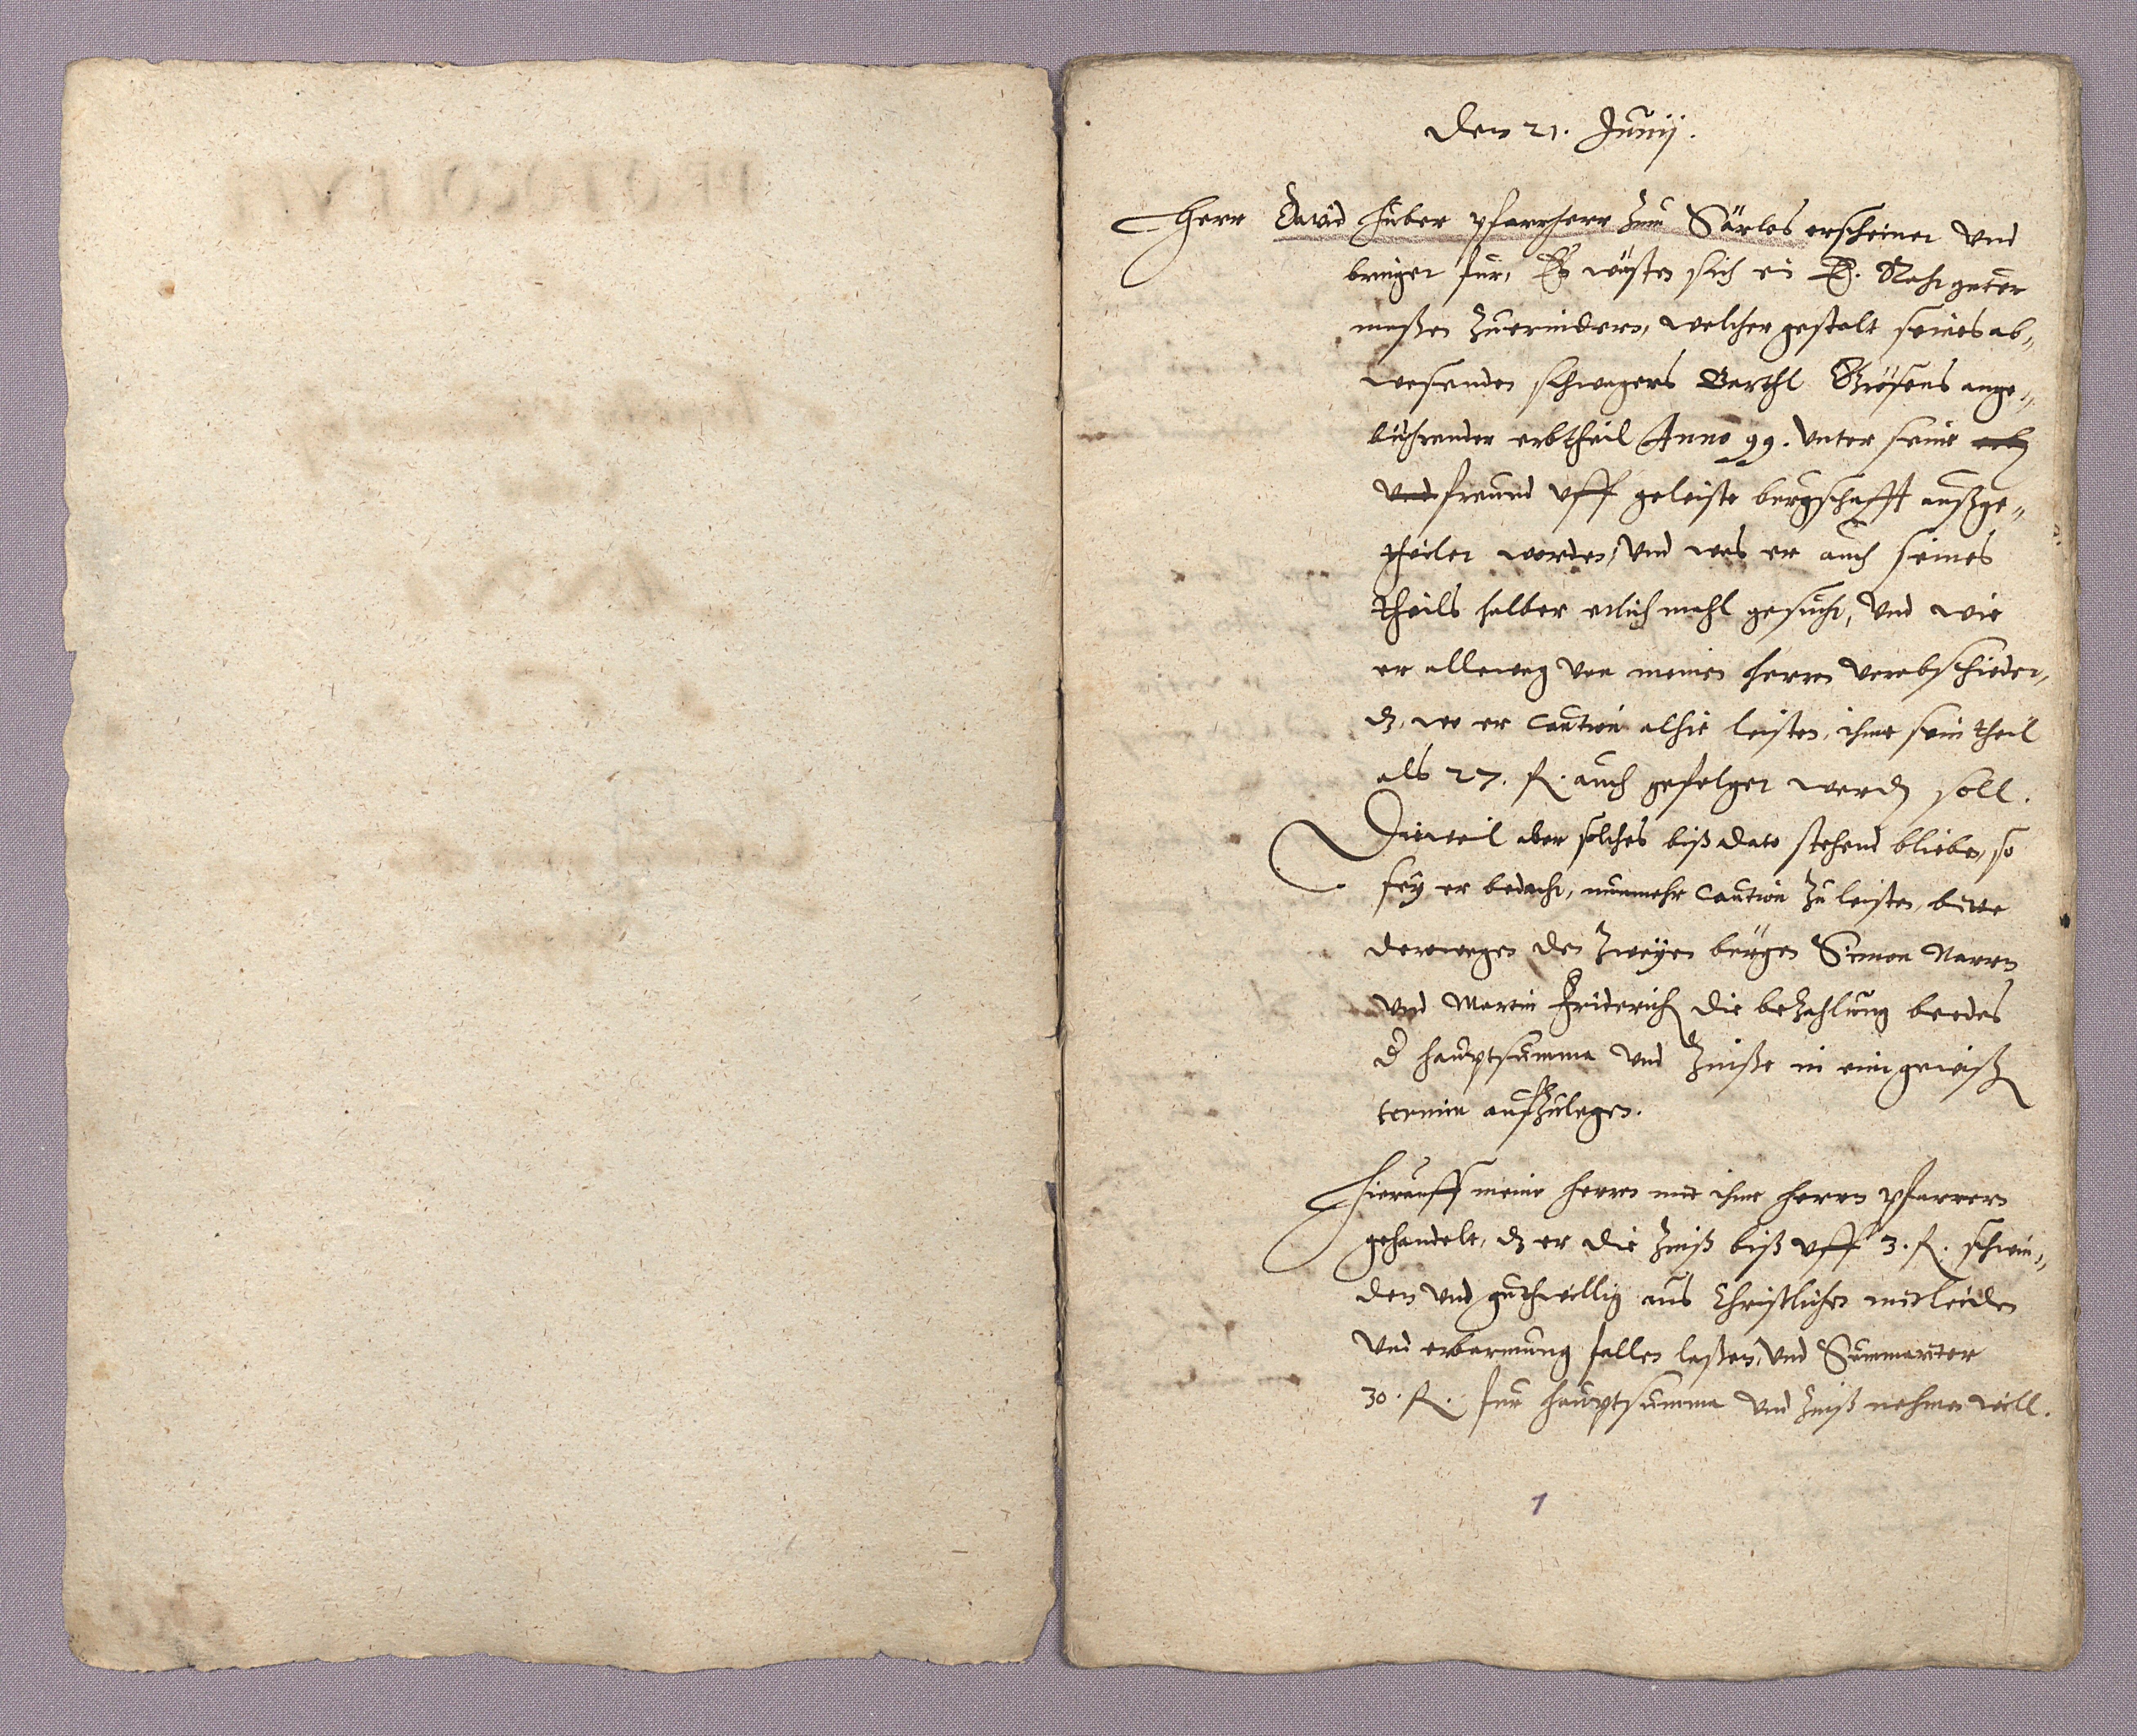 den 21. Junij.
Herr David Huber pfarrherr zum Särlos erscheinet vnd
bringet fur, Es wusten sich ein E. Rath guter
maßen zuerindern, welcher gestalt seines ab„
wesenden schwagers Barthl ange„
bührender erbtheil Anno 99. vnter seine erbn
vnd freund vff geleiste burgschafft außge„
theilet worden, vnd was er auch seines
theils halber etlich mahl gesucht, vnd wie
er alleweg von meinen herrn verabschiedet,
dz, wo er Caution alhie leisten, ihme sein theil
als 27. fl. auch gefolget werdn soll.
Dieweil aber solches biß dato stehend blieben, so
sey er bedacht, nunmehr Caution zu leisten, bitte
derwegen den zweyen bürgen Simon Narrn
vnd Martin Friderich die bezahlung beedes
d hauptsumma vnd Zinße in ein gewißn
termin aufzulegen.
Hierauff meine herrn mit ihme herrn pfarrern
gehandelt, dz er die Zinß biß vff 3. fl. schwin„
den vnd guthwillig aus Christlichen mitleiden
vnd erbarmung fallen laßen, vnd Summariter
30. fl. fur hauptsumma vnd Zinß nehmen will.
1